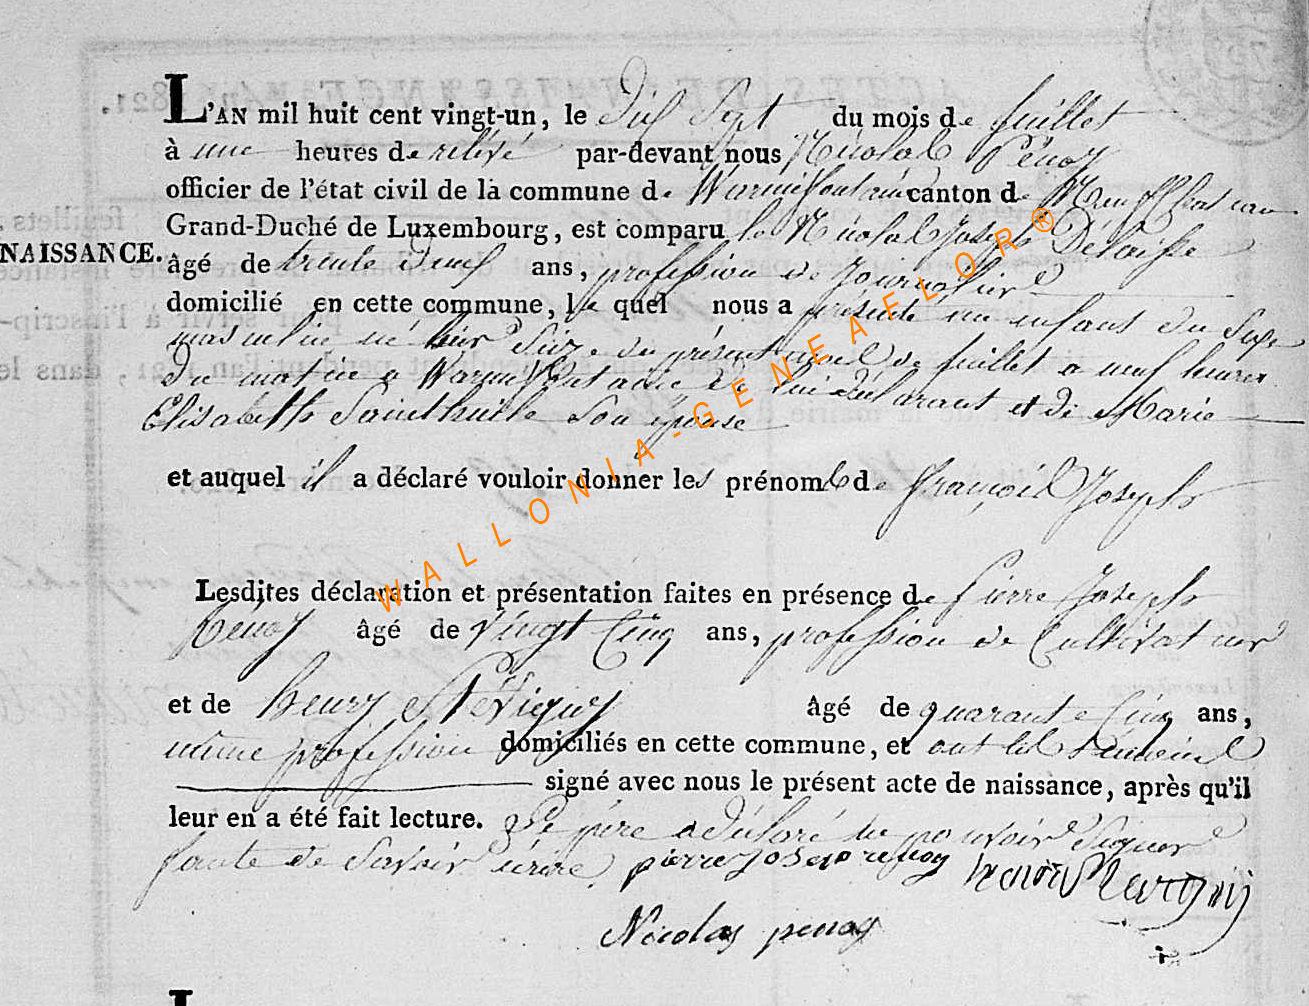 L'AN mil huit cent vingt-un, le dix Sept du mois de juillet
à une heures de relévé par-devant nous Nicolas Penoy
officier de l'état civil de la commune de Warmifontaine canton de Neufchateau
Grand-Duché de Luxembourg, est comparu le Nicolas Joseph Delaisse
NAISSANCE. âgé de trente deux ans, profession de Journalier
domicilié en cette commune, le quel nous a présenté un enfant du Sexe
masculin né hier Seize du présent mois de juillet a neuf heures
du matin a Warmifontaine de lui déclarant et de Marie
Elisabeth Sainthuile Son épouse
et auquel il a déclaré vouloir donner les prénoms de François Joseph
Lesdites déclaration et présentation faites en présence de Pierre Joseph
âgé de Vingt Cinq ans, profession de Cultivateur
et de henry Stévigny âgé de quarante Cinq ans,
même profession domiciliés en cette commune, et ont les témoins
signé avec nous le présent acte de naissance, après qu'il
leur en a été fait lecture. Le père a déclaré ne pouvoir Signer
faute de Savoir écrire. pierre Joseph
Nicolas penoy
WALLONIA-GENEAFLOR®